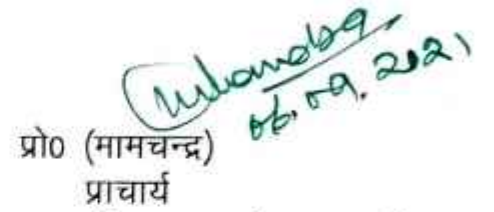 06.09.2021
प्रो0 (मामचन्द्र)
प्राचार्य